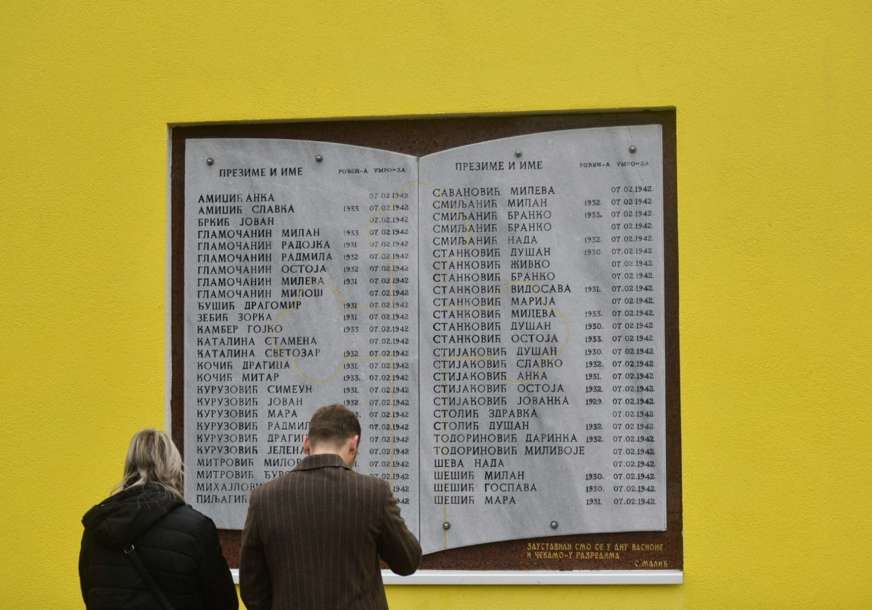 ПРЕЗИМЕ И ИМЕ РОЂЕН-А УМРО-ЛА
АМИЏИЋ АНКА 07.02.1942.
АМИЏИЋ СЛАВКА 1933. 07.02.1942.
БРКИЋ ЈОВАН 07.02.1942.
ГЛАМОЧАНИН МИЛАН 1933. 07.02.1942.
ГЛАМОЧАНИН РАДОЈКА 1931. 07.02.1942.
ГЛАМОЧАНИН РАДМИЛА 1932. 07.02.1942.
ГЛАМОЧАНИН ОСТОЈА 1932. 07.02.1942.
ГЛАМОЧАНИН МИЛЕВА 1931. 07.02.1942.
ГЛАМОЧАНИН МИЛОШ 07.02.1942.
БУШИЋ ДРАГОМИР 1931. 07.02.1942.
ЗЕБИЋ ЗОРКА 1931. 07.02.1942.
КАМБЕР ГОЈКО 1933. 07.02.1942.
КАТАЛИНА СТАМЕНА 07.02.1942.
КАТАЛИНА СВЕТОЗАР 1932. 07.02.1942.
КОЧИЋ ДРАГИЦА 1931. 07.02.1942.
КОЧИЋ МИТАР 1933. 07.02.1942.
КУРУЗОВИЋ СИМЕУН 1931. 07.02.1942.
КУРУЗОВИЋ ЈОВАН 1932. 07.02.1942.
КУРУЗОВИЋ МАРА 07.02.1942.
КУРУЗОВИЋ 07.02.1942.
КУРУЗОВИЋ 07.02.1942.
КУРУЗОВИЋ ЈЕЛЕНА 07.02.1942.
МИТРОВИЋ 07.02.1942.
МИТРОВИЋ 07.02.1942.
07.02.1942.
07.02.1942.
ПРЕЗИМЕ И ИМЕ РОЂЕН-А УМРО-ЛА
САВАНОВИЋ МИЛЕВА 07.02.1942.
СМИЉАНИЋ МИЛАН 1932. 07.02.1942.
СМИЉАНИЋ БРАНКО 1933. 07.02.1942.
СМИЉАНИЋ БРАНКО 07.02.1942.
СМИЉАНИЋ НАДА 1932. 07.02.1942.
СТАНКОВИЋ ДУШАН 1930. 07.02.1942.
СТАНКОВИЋ ЖИВКО 07.02.1942.
СТАНКОВИЋ БРАНКО 07.02.1942.
СТАНКОВИЋ ВИДОСАВА 1931. 07.02.1942.
СТАНКОВИЋ МАРИЈА 07.02.1942.
СТАНКОВИЋ МИЛЕВА 1933. 07.02.1942.
СТАНКОВИЋ ДУШАН 1930. 07.02.1942.
СТАНКОВИЋ ОСТОЈА 1933. 07.02.1942.
СТИЈАКОВИЋ ДУШАН 1930. 07.02.1942.
СТИЈАКОВИЋ СЛАВКО 1932. 07.02.1942.
СТИЈАКОВИЋ АНКА 1931. 07.02.1942.
СТИЈАКОВИЋ ОСТОЈА 1932. 07.02.1942.
СТИЈАКОВИЋ ЈОВАНКА 1929. 07.02.1942.
СТОЛИЋ ЗДРАВКА 07.02.1942.
СТОЛИЋ ДУШАН 1932. 07.02.1942.
ТОДОРИНОВИЋ ДАРИНКА 1932. 07.02.1942.
ТОДОРИНОВИЋ МИЛИВОЈЕ 07.02.1942.
ШЕВА НАДА 07.02.1942.
ШЕШИЋ МИЛАН 1930. 07.02.1942.
ШЕШИЋ ГОСПАВА 1930. 07.02.1942.
ШЕШИЋ МАРА 1931. 07.02.1942.
ЗАУСТАВИЛИ СМО СЕ У ДНУ ВАСИОНЕ
И ЧЕКАМО-У РАЗРЕДИМА
С.МАЛИЋ